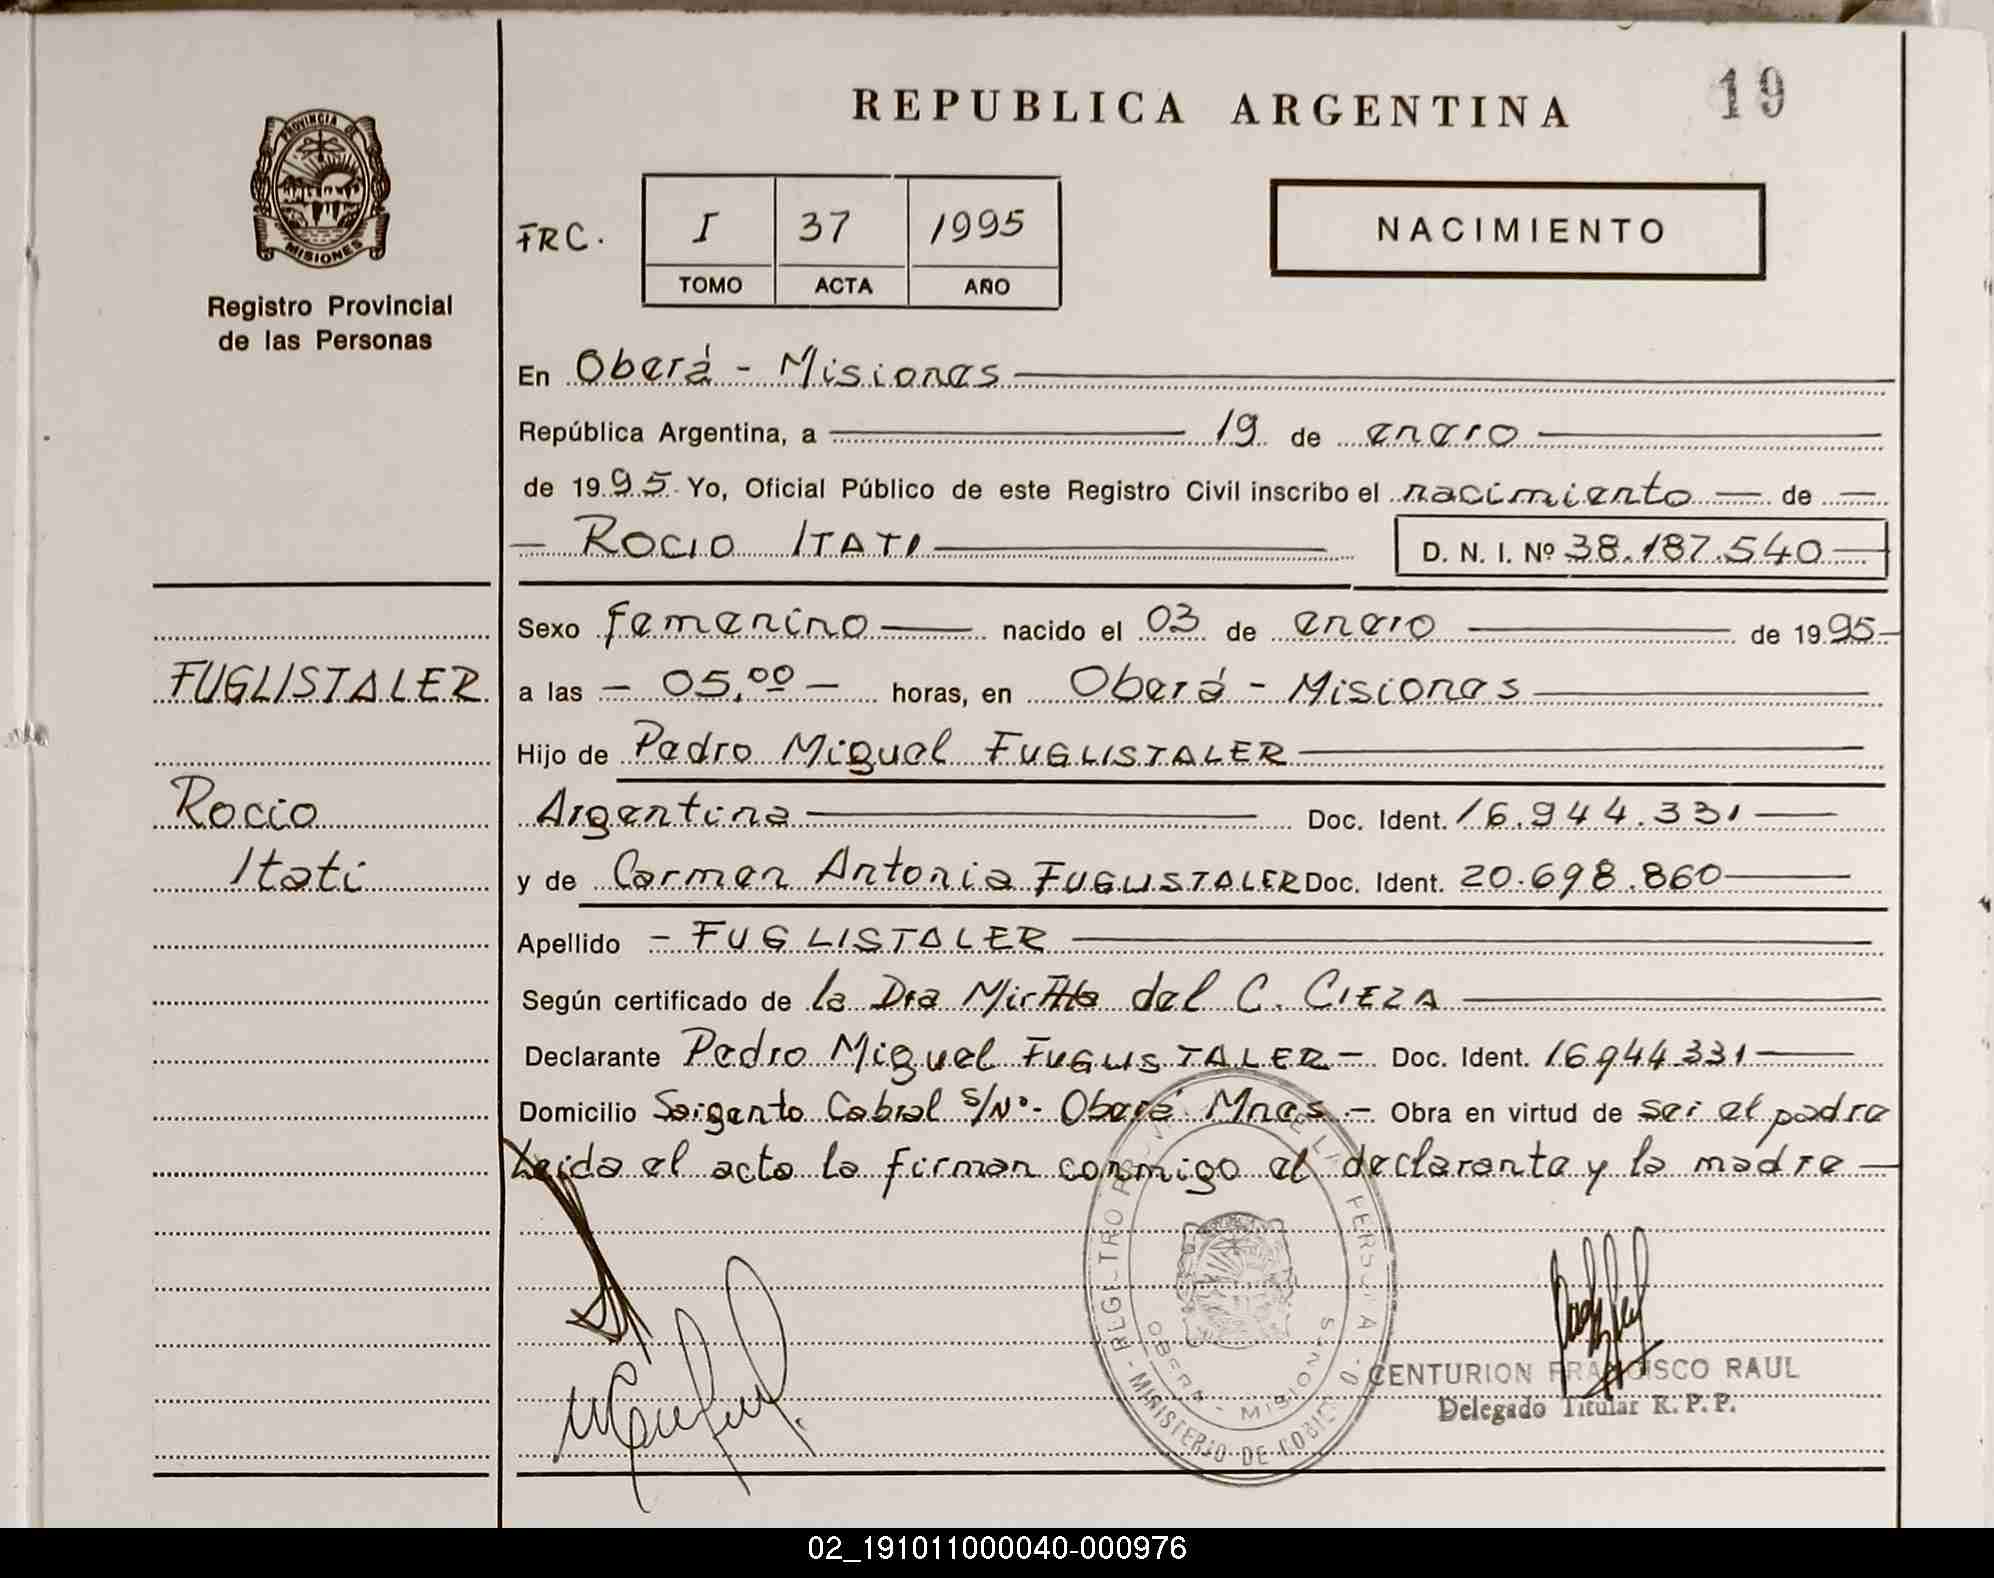 REPUBLICA ARGENTINA
19
PROVINCIA DE
MISIONES
Registro Provincial
de las Personas
FRC. I 37 1995
TOMO ACTA AÑO
NACIMIENTO
En Oberá - Misiones
República Argentina, a 19 de enero
de 1995 Yo, Oficial Público de este Registro Civil inscribo el nacimiento de
ROCIO ITATI D. N. I. Nº 38.187.540
Sexo femenino nacido el 03 de enero de 1995
FUGLISTALER
a las 05,00 horas, en Oberá - Misiones
Hijo de Pedro Miguel FUGLISTALER
Rocio
Argentina Doc. Ident. 16.944.331
Itati
y de Carmen Antonia FUGLISTALER Doc. Ident. 20.698.860
Apellido - FUGLISTALER
Según certificado de la Dra del C. CIEZA
Declarante Pedro Miguel FUGLISTALER - Doc. Ident. 16.944.331
Domicilio Sargento Cabral S/Nº - Oberá Mnes. - Obra en virtud de ser el padre
Leida el acta la firman conmigo el declarante y la madre
REGISTRO PERSONA
MINISTERIO DE GOBIERNO
OBERA - MISIONES
CENTURION FRANCISCO RAUL
Delegado Titular R. P. P.
02_191011000040-000976